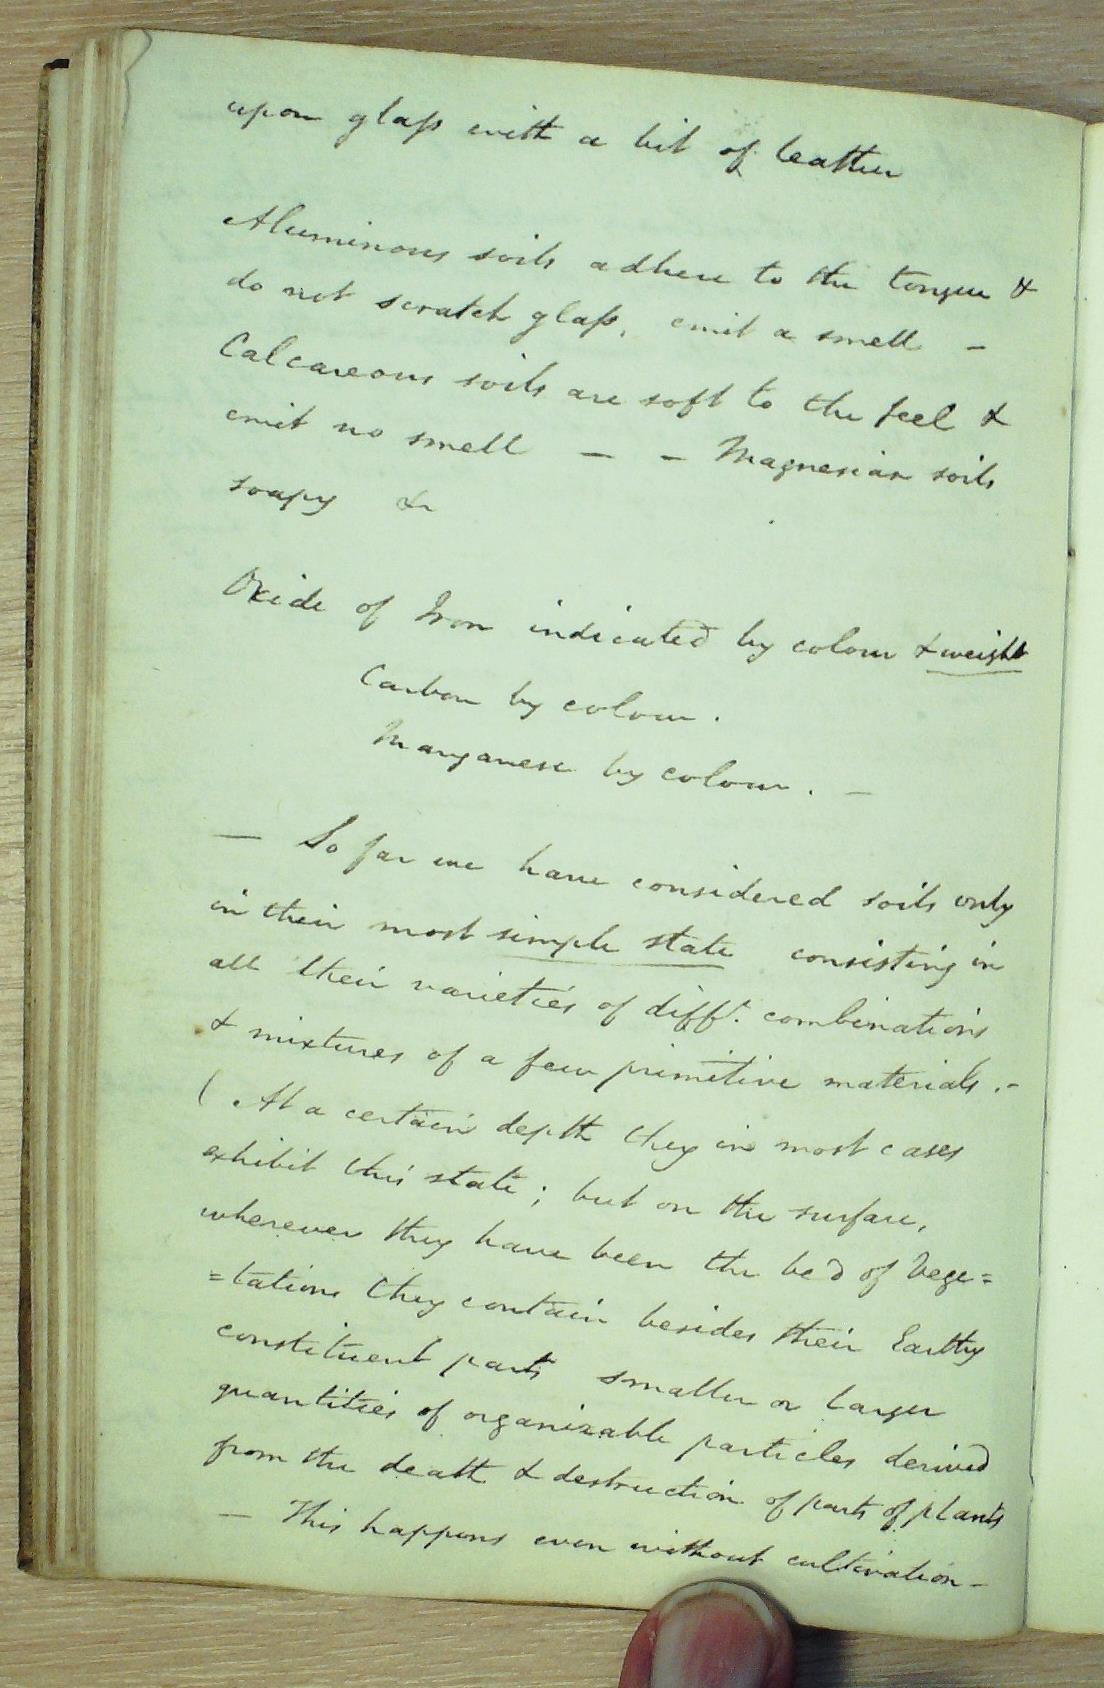 upon glaſs with a bit of leather
Aluminous soils adhere to the tongue &
do not scratch glaſs, emit a smell –
Calcareous soils are soft to the feel &
emit no smell – – Magnesian soils
soapy &c
Oxide of Iron indicated by colour & weight
Carbon by colour.
Manganese by colour. –
— So far we have considered soils only
in their most simple state consisting in
all their varieties of diff.t combinations
& mixtures of a few primitive materials. –
( At a certain depth they in most cases
exhibit this state; but on the surface,
wherever they have been the bed of Vege=
=tation they contain besides their Earthy
constituent parts smaller or larger
quantities of organizable particles derived
from the death & destruction of parts of plants
— This happens even without cultivation –